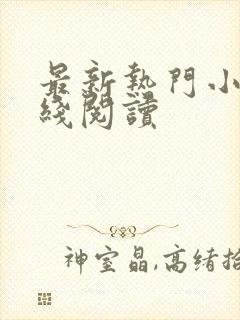 最新熱門小
綫閱讀
神室晶,高绪拾